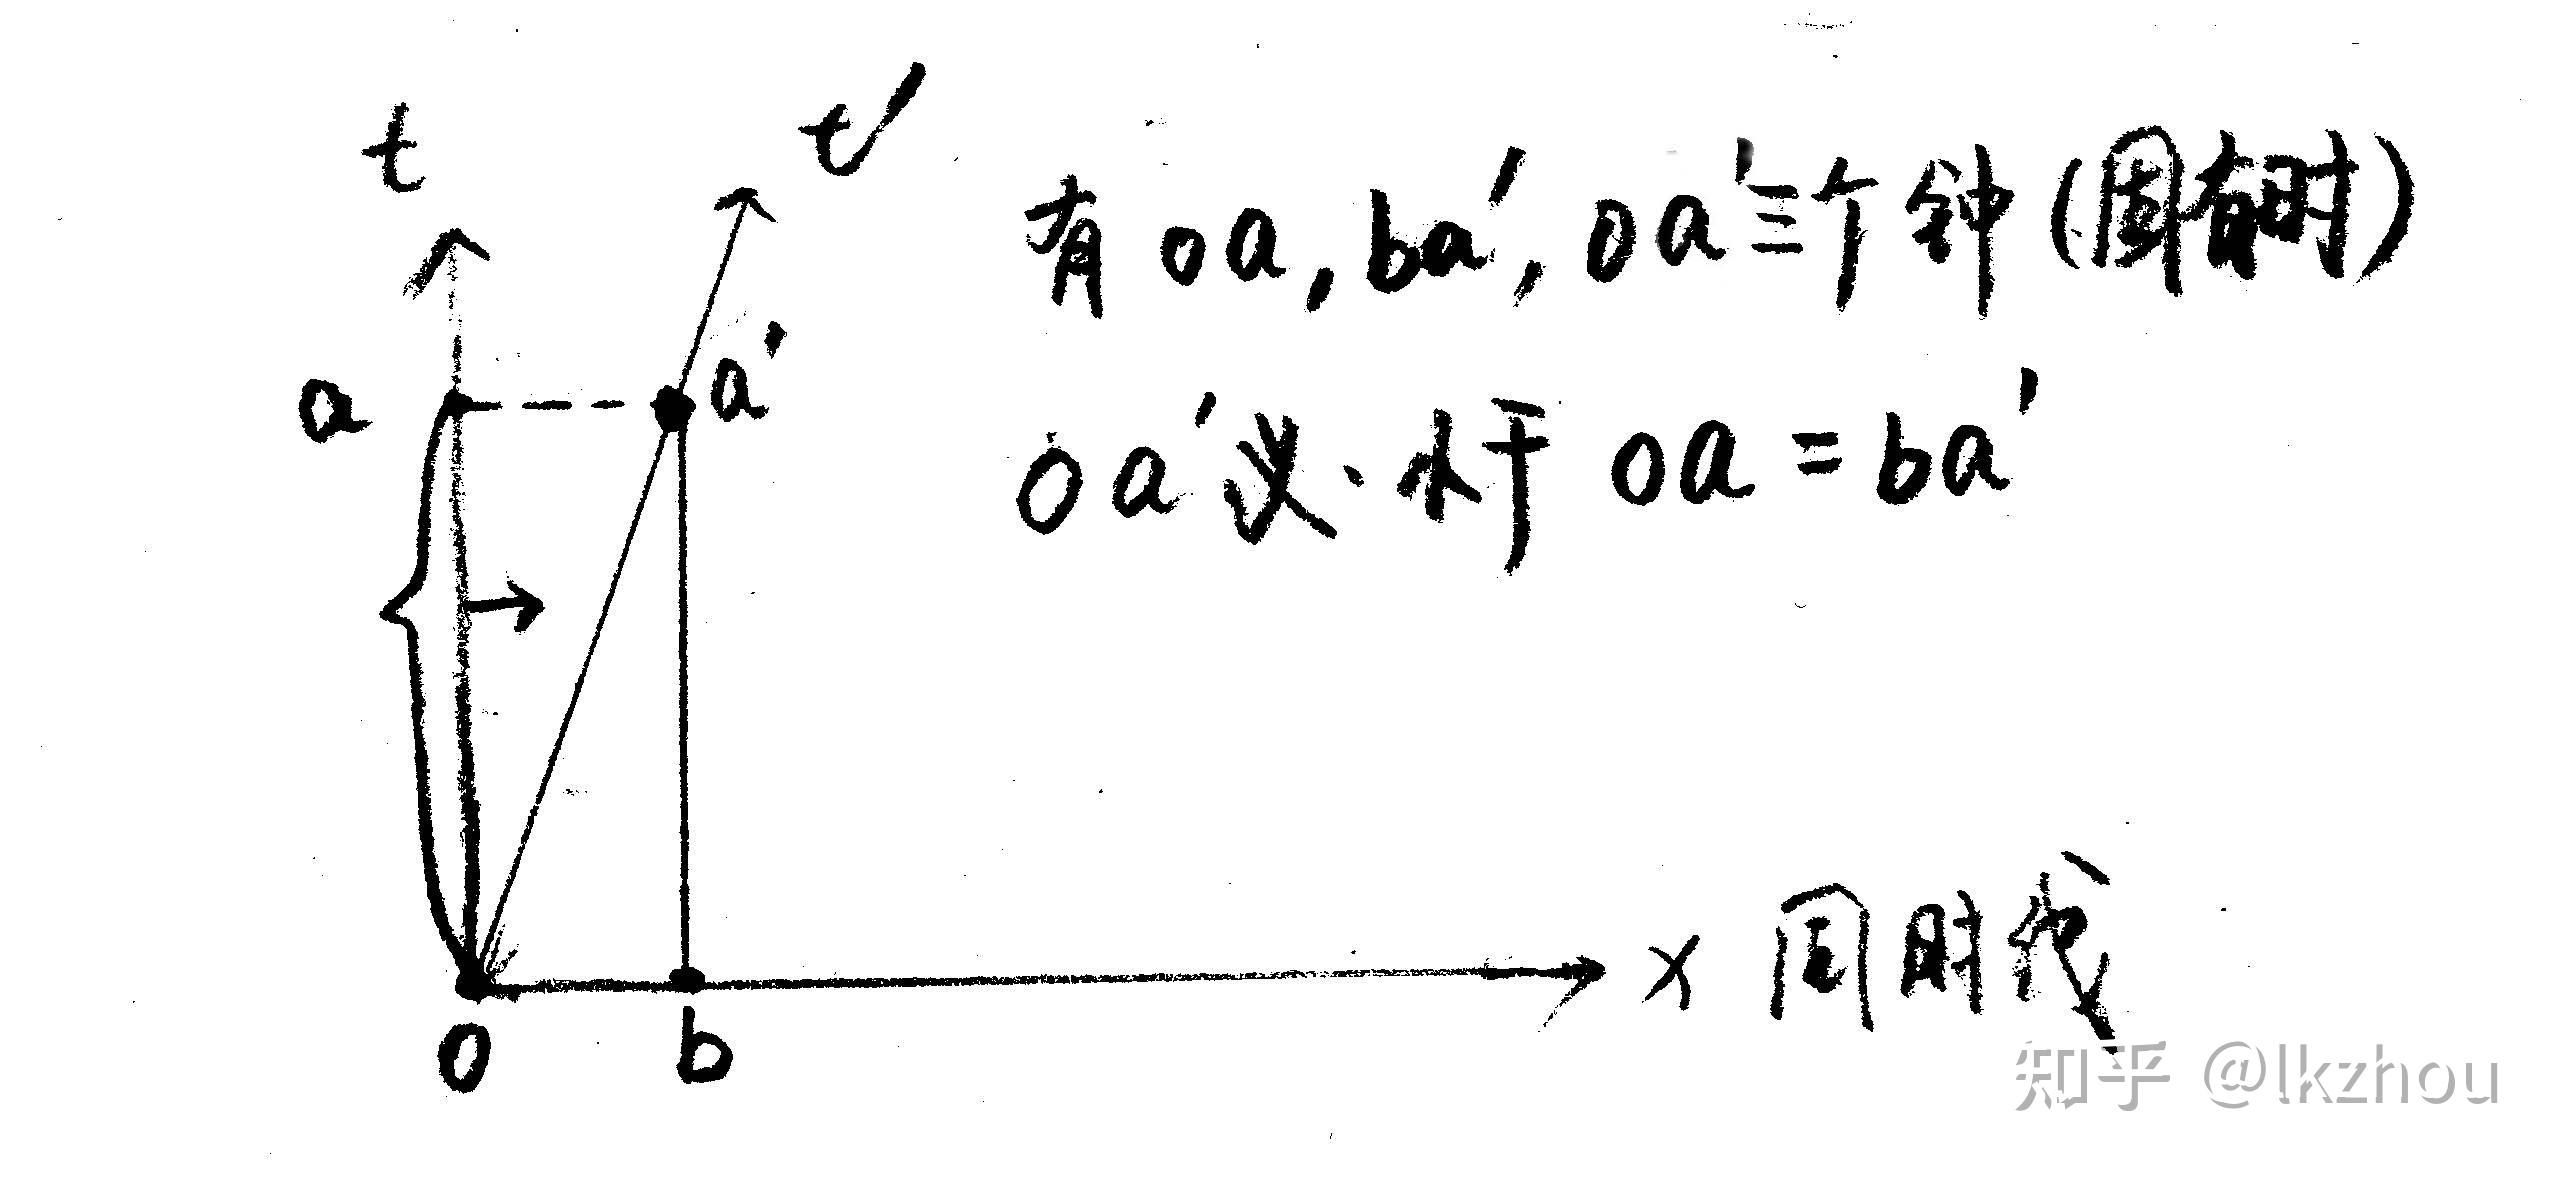 t t'
有 oa, ba', oa'三个钟(固有时)
a a'
oa'义.小于 oa = ba'
x 同时线
o b
知乎 @lkzhou